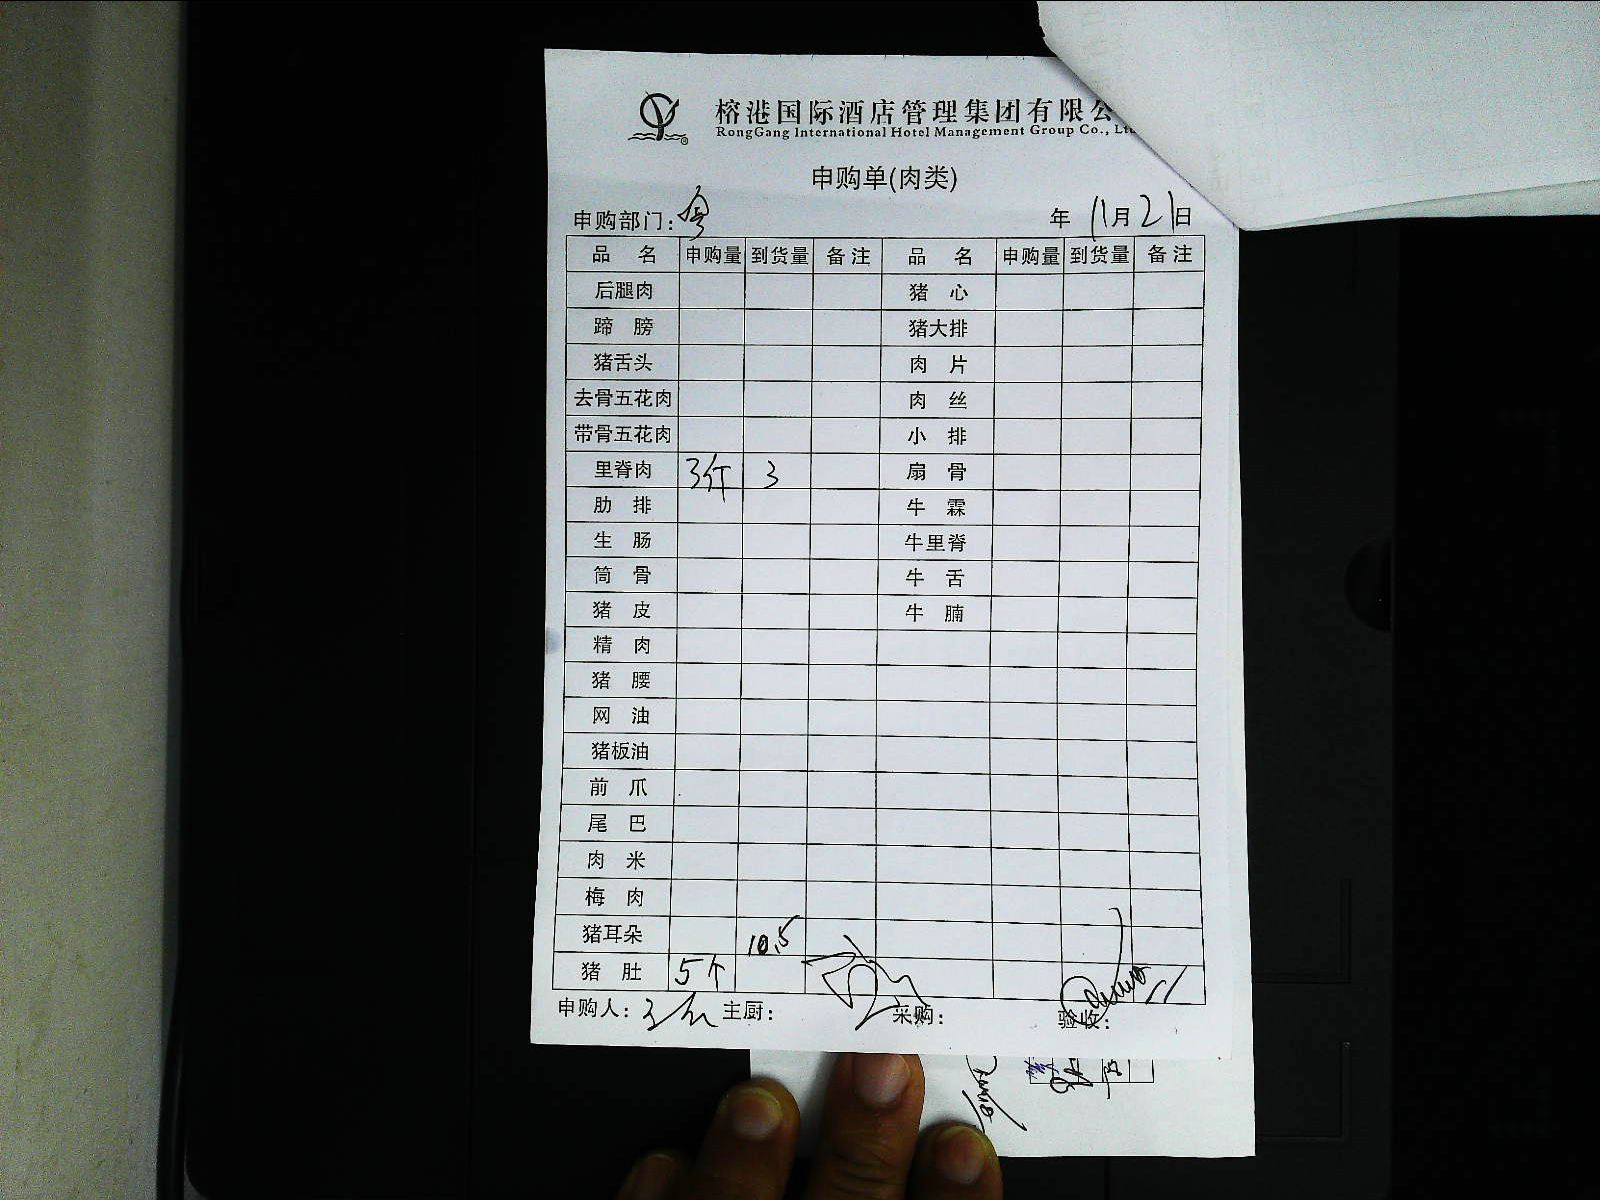 榕港国际酒店管理集团有限公
RongGang International Hotel Management Group Co., Ltd
申购单(肉类)
申购部门: 粤 年 11月21日
品 名 申购量 到货量 备注 品 名 申购量 到货量 备注
后腿肉 猪 心
蹄 膀 猪大排
猪舌头 肉 片
去骨五花肉 肉 丝
带骨五花肉 小 排
里脊肉 3斤 3 扇 骨
肋 排 牛 霖
生 肠 牛里脊
筒 骨 牛 舌
猪 皮 牛 腩
精 肉
猪 腰
网 油
猪板油
前 爪
尾 巴
肉 米
梅 肉
猪耳朵 10.5
猪 肚 5个
申购人: 主厨: 采购: 验收: